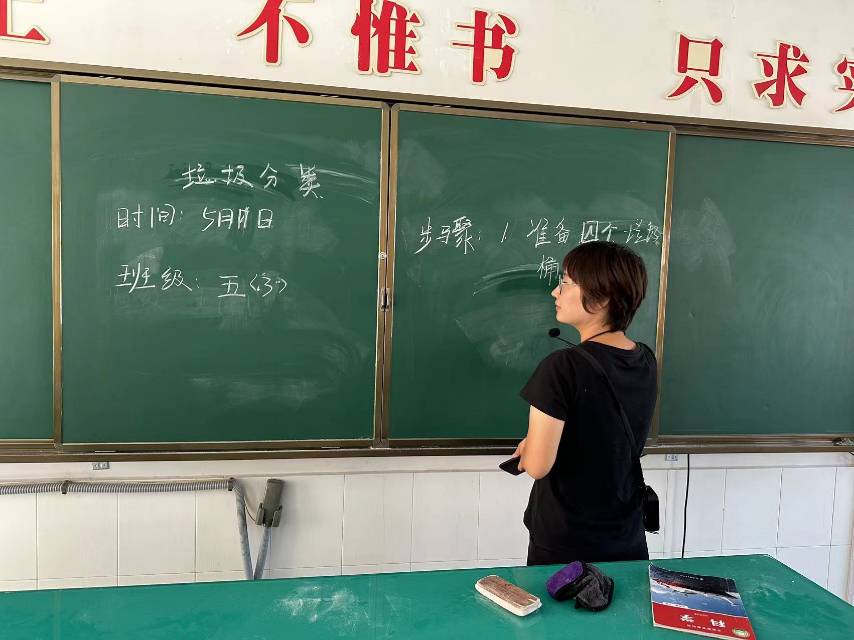 上 不惟书 只求实
垃圾分类
时间: 5月11日
班级: 五(3)
步骤: 1. 准备四个垃圾
桶
科学